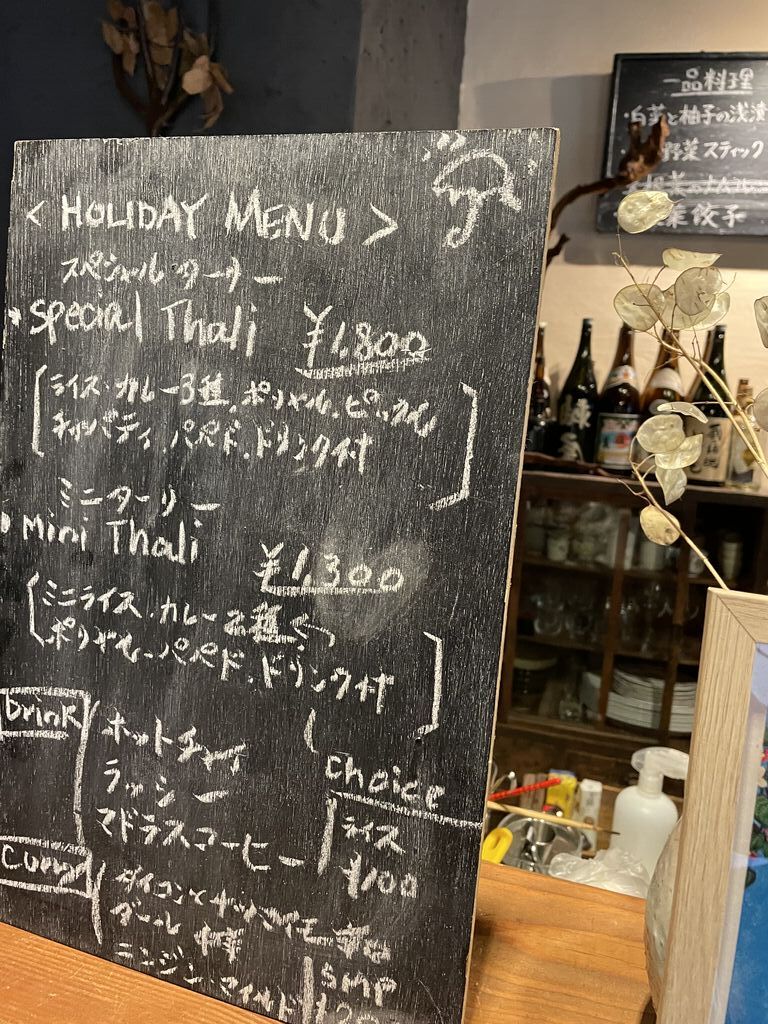 < HOLIDAY MENU >
スペシャルターリー
・Special Thali ¥1,800
ライス・カレー3種、ポリヤル、ピックル
チャパティ、パパド、ドリンク付
ミニターリー
・Mini Thali
¥1,300
ミニライス・カレー2種
ポリヤル、パパド、ドリンク付
Drink
ホットチャイ
ラッシー
マドラスコーヒー
choice
ライス
¥100
Curry
ダイコンと
ダール
ニンジン
一品料理
・白菜と柚子の浅漬
野菜スティック
餃子